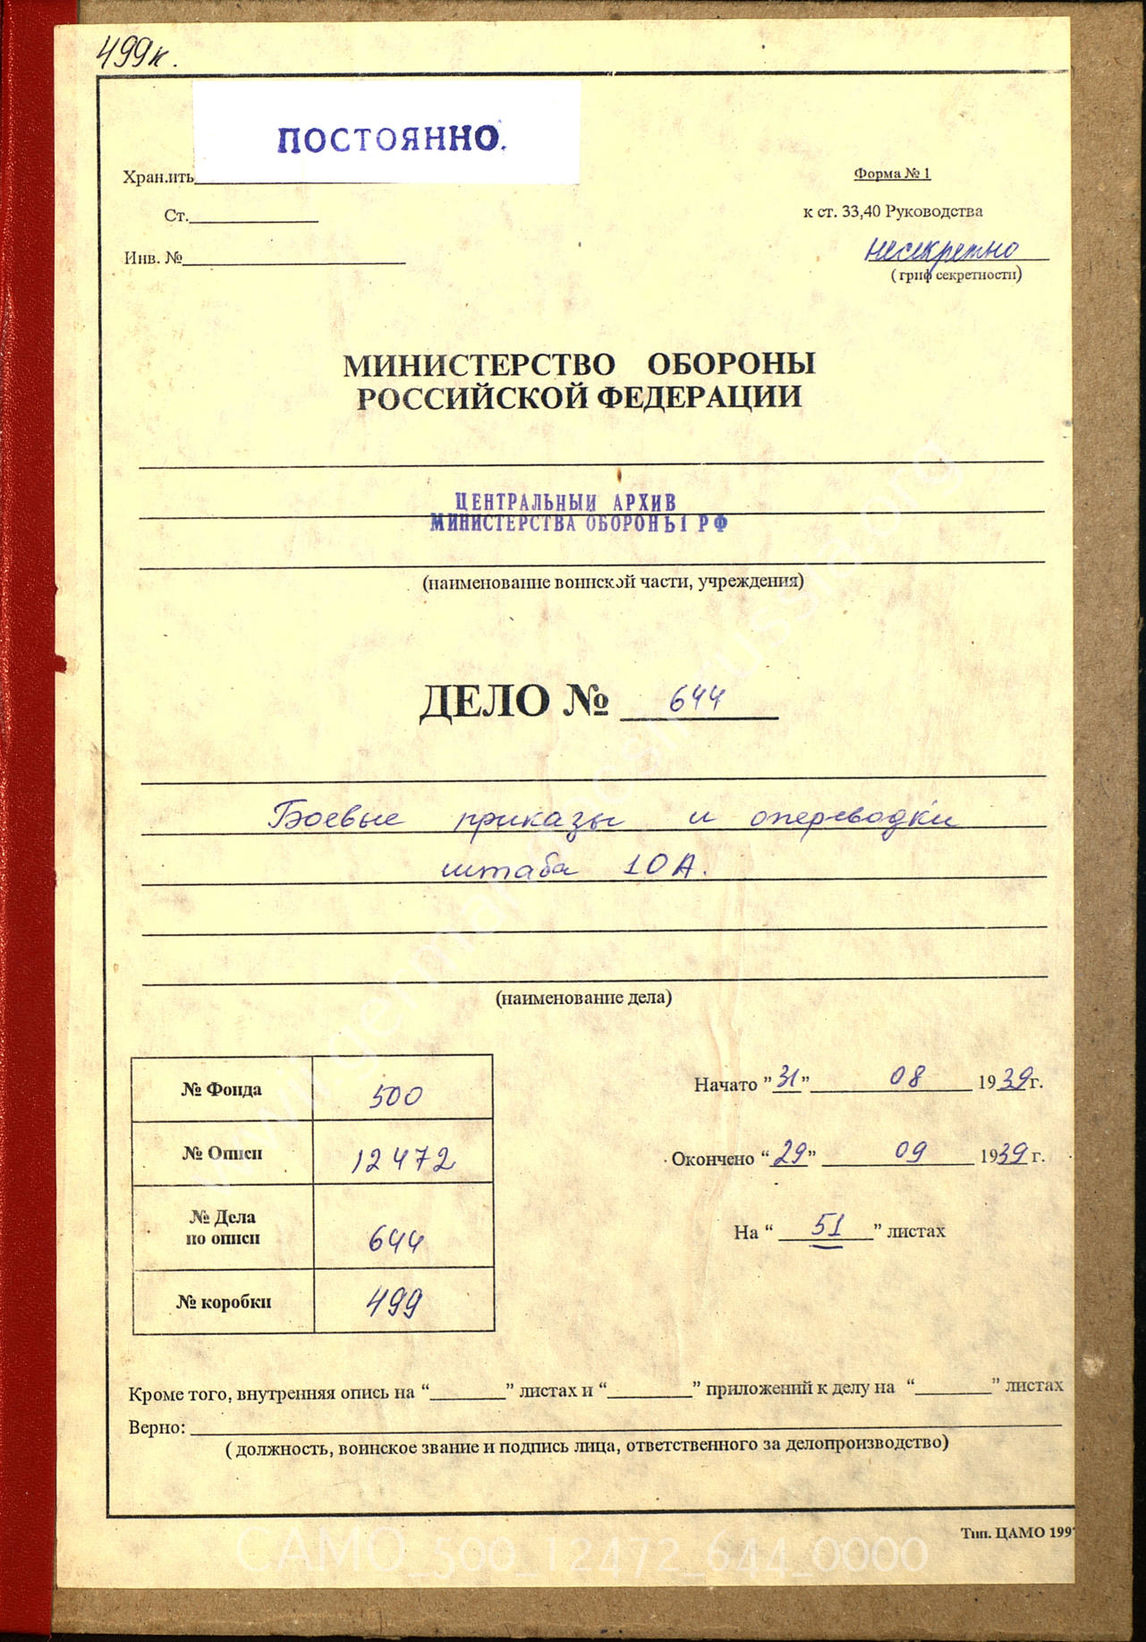 499к.
ПОСТОЯННО.
Хранить
Форма № 1
Ст.
к ст. 33,40 Руководства
Инв. №
несекретно
( гриф секретности)
МИНИСТЕРСТВО ОБОРОНЫ
РОССИЙСКОЙ ФЕДЕРАЦИИ
ЦЕНТРАЛЬНЫЙ АРХИВ
МИНИСТЕРСТВА ОБОРОНЫ РФ
(наименование воинской части, учреждения)
ДЕЛО № 644
Боевые приказы и оперсводки
штаба 10А.
(наименование дела)
№ Фонда 500
№ Описи 12472
№ Дела
по описи 644
№ коробки 499
Начато "31" 08 1939г.
Окончено "29" 09 1939г.
На "51" листах
Кроме того, внутренняя опись на "" листах и "" приложений к делу на "" листах
Верно:
( должность, воинское звание и подпись лица, ответственного за делопроизводство)
Тип. ЦАМО 199
CAMO_500_12472_644_0000